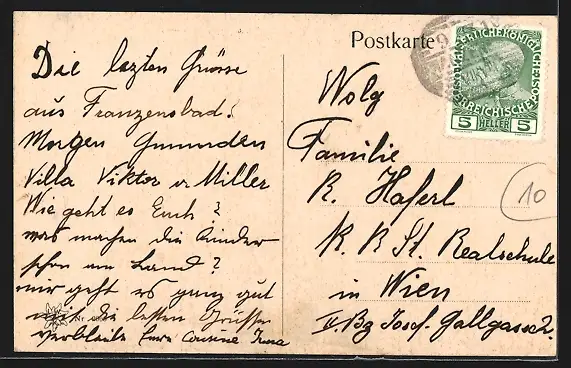 Die lezten Grüsse
aus Franzensbad.
Morgen Gmunden
Villa Viktor v Miller
Wie geht es Euch?
was machen die Kinder
schon am Land?
mir geht es ganz gut
mit die besten Grüssen
verbleibe Eure Cousine
Postkarte
Wolg
Familie
R. Haferl
K. K. St. Realschule
in Wien
II. Bz Josef Gallgasse 2.
10
5 HELLER 5